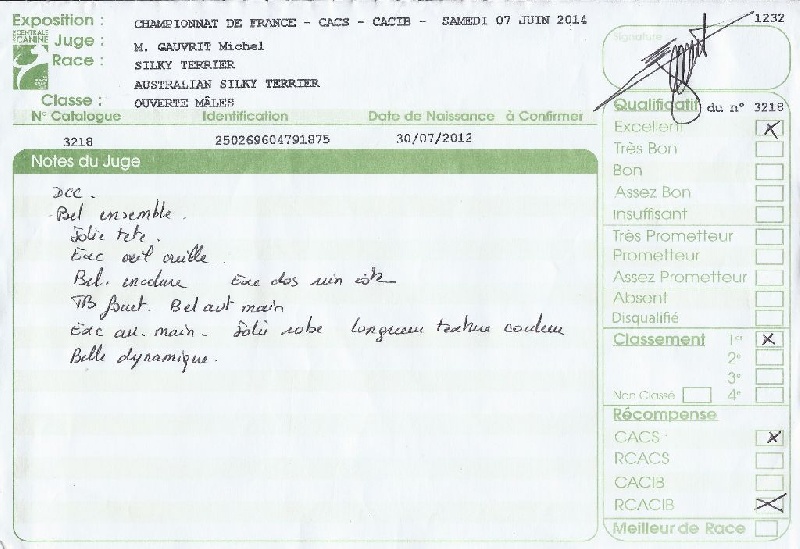 Exposition : CHAMPIONNAT DE FRANCE - CACS - CACIB - SAMEDI 07 JUIN 2014
CENTRALE
CANINE
Juge : M. GAUVRIT Michel
Race : SILKY TERRIER
AUSTRALIAN SILKY TERRIER
Classe : OUVERTE MÂLES
N° Catalogue Identification Date de Naissance à Confirmer
3218 250269604791875 30/07/2012
Notes du Juge
DCC.
Bel ensemble.
Jolie tete.
Exc oeil oreille.
Bel. encolure Exc dos rein
TB fouet. Bel avt main
Exc arr. main. Jolie robe longueur texture couleur
Belle dynamique.
1232
Signature
Qualificatif du n° 3218
Excellent X
Très Bon
Bon
Assez Bon
Insuffisant
Très Prometteur
Prometteur
Assez Prometteur
Absent
Disqualifié
Classement 1er X
2e
3e
Non Classé 4e
Récompense
CACS X
RCACS
CACIB
RCACIB X
Meilleur de Race